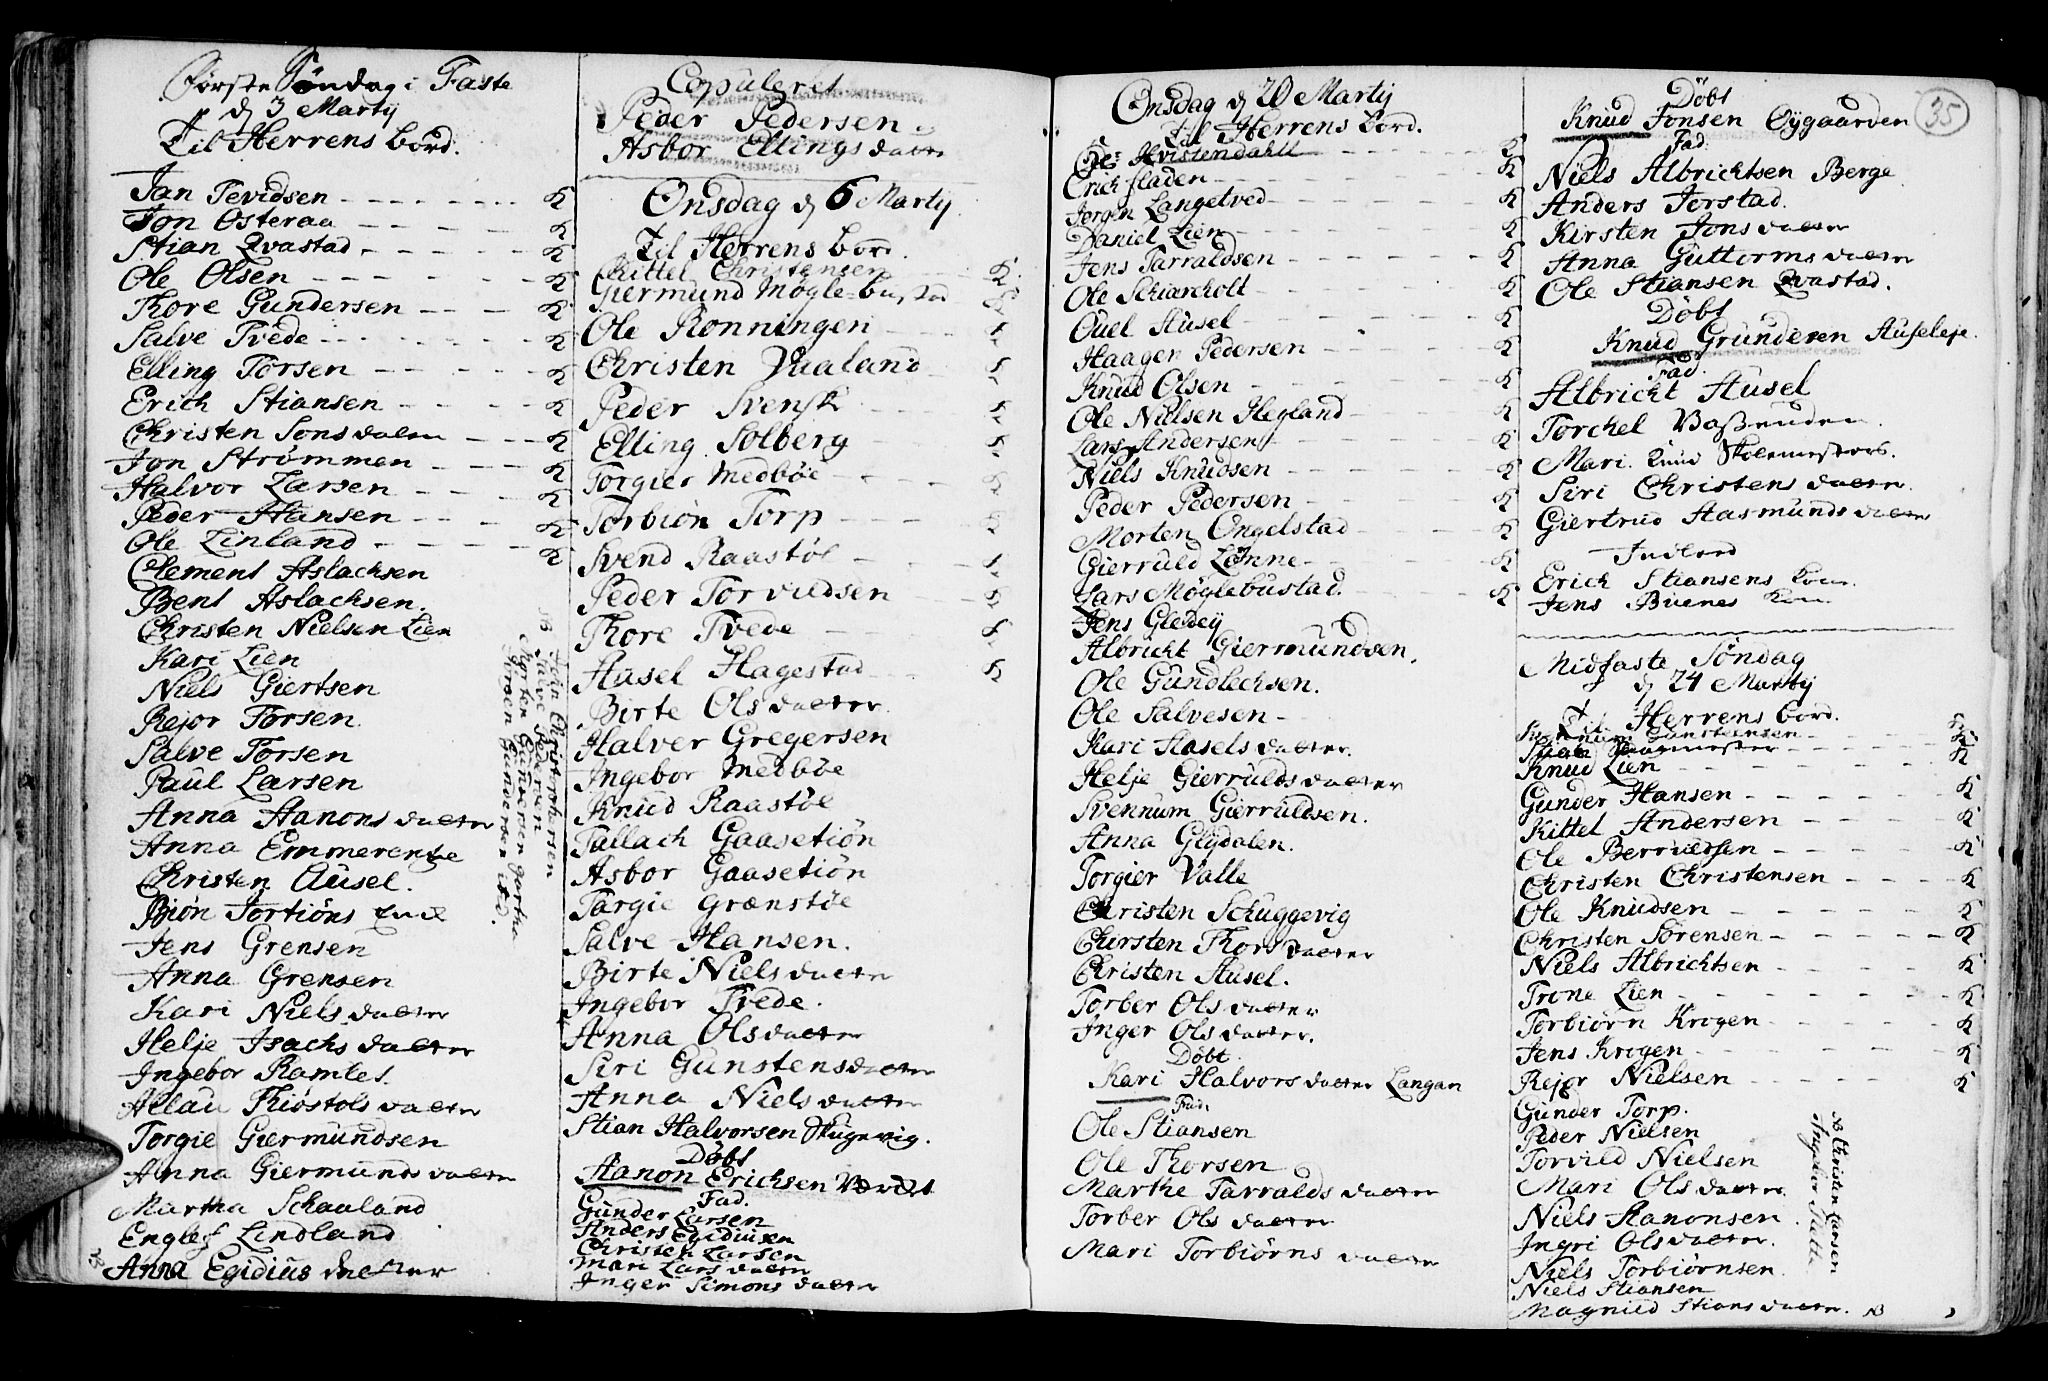 Første Søndag i Faste
d 3 Martij
Til Herrens bord.
Jan Tevidsen K
Jon Osteraa K
Stian Qvastad K
Ole Olsen K
Thore Gundersen K
Salve Tvede K
Elling Torsen K
Erich Stiansen K
Christen Jonsdatter K
Jon Strømmen K
Halvor Larsen K
Peder Hansen K
Ole Linland K
Clemens Aslachsen
Bent Aslachsen.
Christen Nielsen Lien
Kari Lien
Niels Giertsen
Rejor Torsen
Salve Torsen
Paul Larsen
Anna Aanons datter
Anna Emmerentze
Christen Ausel.
Biøn Tortiøns
Jens Grensen
Anna Grensen
Kari Niels datter
Helje Isachs datter
Ingebor Ramles.
Allau Thiøstols datter
Torgie Giermundsen
Anna Giermunds datter
Martha Schaaland
Englef Lindland
NB Anna Egidius datter
NB John Christophersen
Salve Pedersen
Morten Gundersen gartha
Søren Gundersen ibd.
Copuleret
Peder Pedersen
Asbor Ellings datter
Onsdag d 6 Martij
Til Herrens bord.
Chittel Christensen K
Giermund Møglebustad K
Ole Rønningen K
Christen Vualand K
Peder Svensk K
Elling Solberg K
Torgier Medbøe K
Torbiøn Torp K
Svend Raastøl K
Peder Torvildsen K
Thore Tvede K
Husel Hagestad K
Birte Ols datter
Halver Gregersen
Ingebor Medbøe
Knud Raastøl
Tallach Gaasetiøn
Asbor Gaasetiøn
Targie Grænstøl
Salve Hansen.
Birte Niels datter
Ingebor Tvede.
Anna Ols datter
Siri Gunstens datter
Anna Niels datter
Stian Halvorsen Skugevig.
Døbt
Aanon Erichsen
Fad.
Gunder Larsen
Anders Egidiusen
Christen Larsen
Mari Lars datter
Inger Simons datter
Onsdag d 20 Martij
Til Herrens bord.
Hr Hvistendahll K
Erich fladen K
Jørgen Langetved K
Daniel Lien K
Jens Tarraldsen K
Ole Schiærcholt K
Ouel Ausel K
Haagen Pedersen K
Knud Olsen K
Ole Nielsen Hegland K
Lars Andersen K
Niels Knudsen K
Peder Pedersen K
Morten Ongelstad K
Gierruld Lønne K
Lars Møglebustad. K
Jens Gledey
Albricht Giermundsen.
Ole Gundlechsen.
Ole Salvesen
Kari Aasels datter.
Helje Gierrulds datter
Svennum Gierruldsen.
Anna Glydalen.
Torgier Valle
Christen Schuggevig
Chirsten Thors datter
Christen Ausel.
Torber Ols datter
Inger Ols datter.
Døbt
Kari Halvors datter Langan
Fad.
Ole Stiansen
Ole Thorsen
Marthe Tarralds datter
Torber Ols datter
Mari Torbiørns datter
35
Døbt
Knud Jonsen Øygaarden
Fad.
Niels Albrichtsen Berge
Anders Torstad.
Kirsten Jons datter
Anna Guttorms datter
Ole Stiansen Qvastad.
Døbt
Knud Grundesen Auseleje.
Fad.
Albricht Ausel
Torchel Vaßenden.
Mari Knud Skolemesters.
Siri Christens datter
Giertrud Aasmunds datter
Indlæd
Erich Stiansens kone.
Jens Buenes kone
Midfaste Søndag
d 24 Martij
Til Herrens bord.
Gunstensen K
Stian K
Knud Lien K
Gunder Hansen K
Kittel Andersen K
Ole Berruldsen K
Christen Christensen K
Ole Knudsen K
Christen Sørensen K
Niels Albrichtsen K
Trone Lien K
Torbiørn Krogen K
Jens Krogen K
Rejor Nielsen K
Gunder Torp.
Peder Nielsen
Torvild Nielsen
Mari Ols datter
Niels Aanonsen
Ingri Ols datter.
Niels Torbiørnsen
Niels Stiansen
Magnild Stians datter. NB
NB Christen Larsen
Ingebor